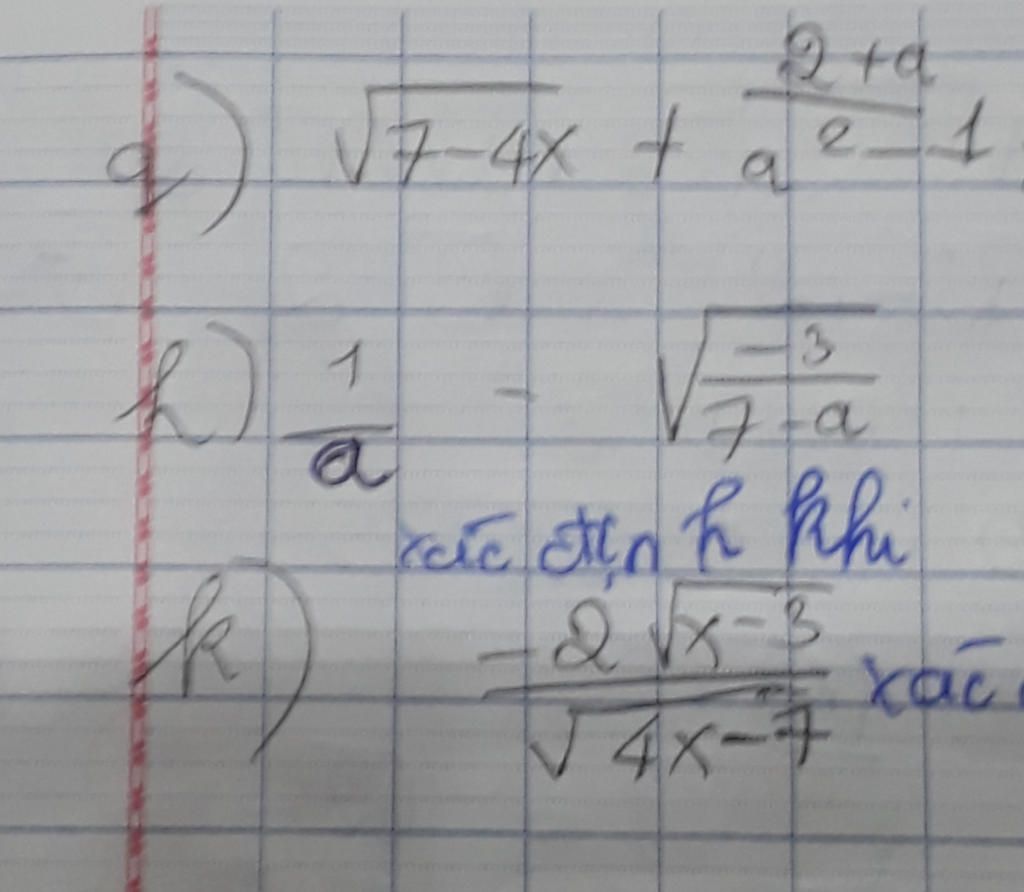 g) √(7-4x) + (2+a)/(a²-1)
h) 1/a - √(-3/(7-a))
xác định khi
k) (-2√(x-3))/(√(4x-7)) xác